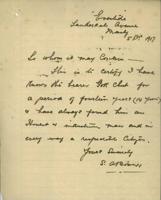 Lauderdale Avenue
Manly
5th Dec 1917
To whom it may Concern
This is to certify I have
known the bearer
for a period of fourteen years (14 years)
& have always found him an
Honest & industrious man and in
every way a respectable Citizen.
Yours Sincerely
S.